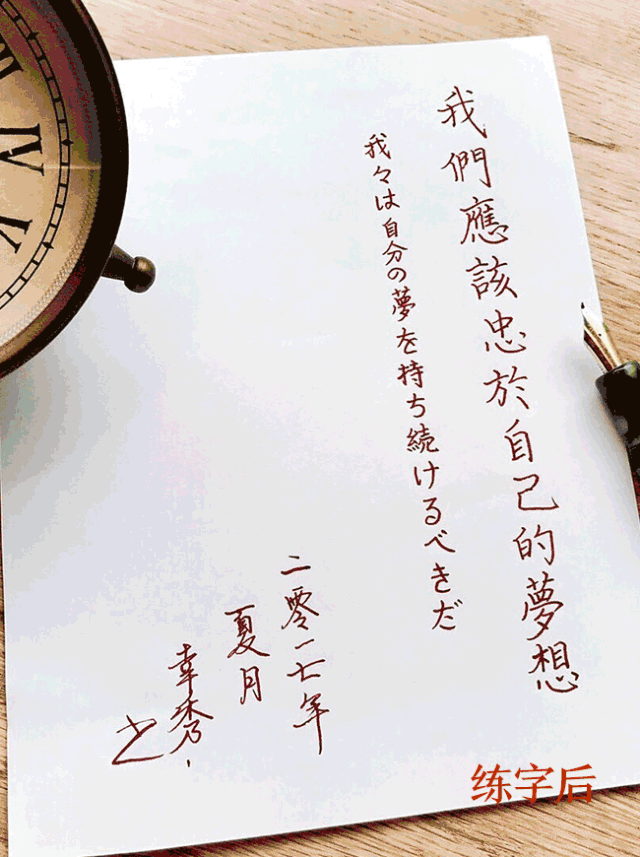 我們應該忠於自己的夢想
我々は自分の夢を持ち続けるべきだ
二零一七年
夏月
幸秀
之
练字后
IV
V